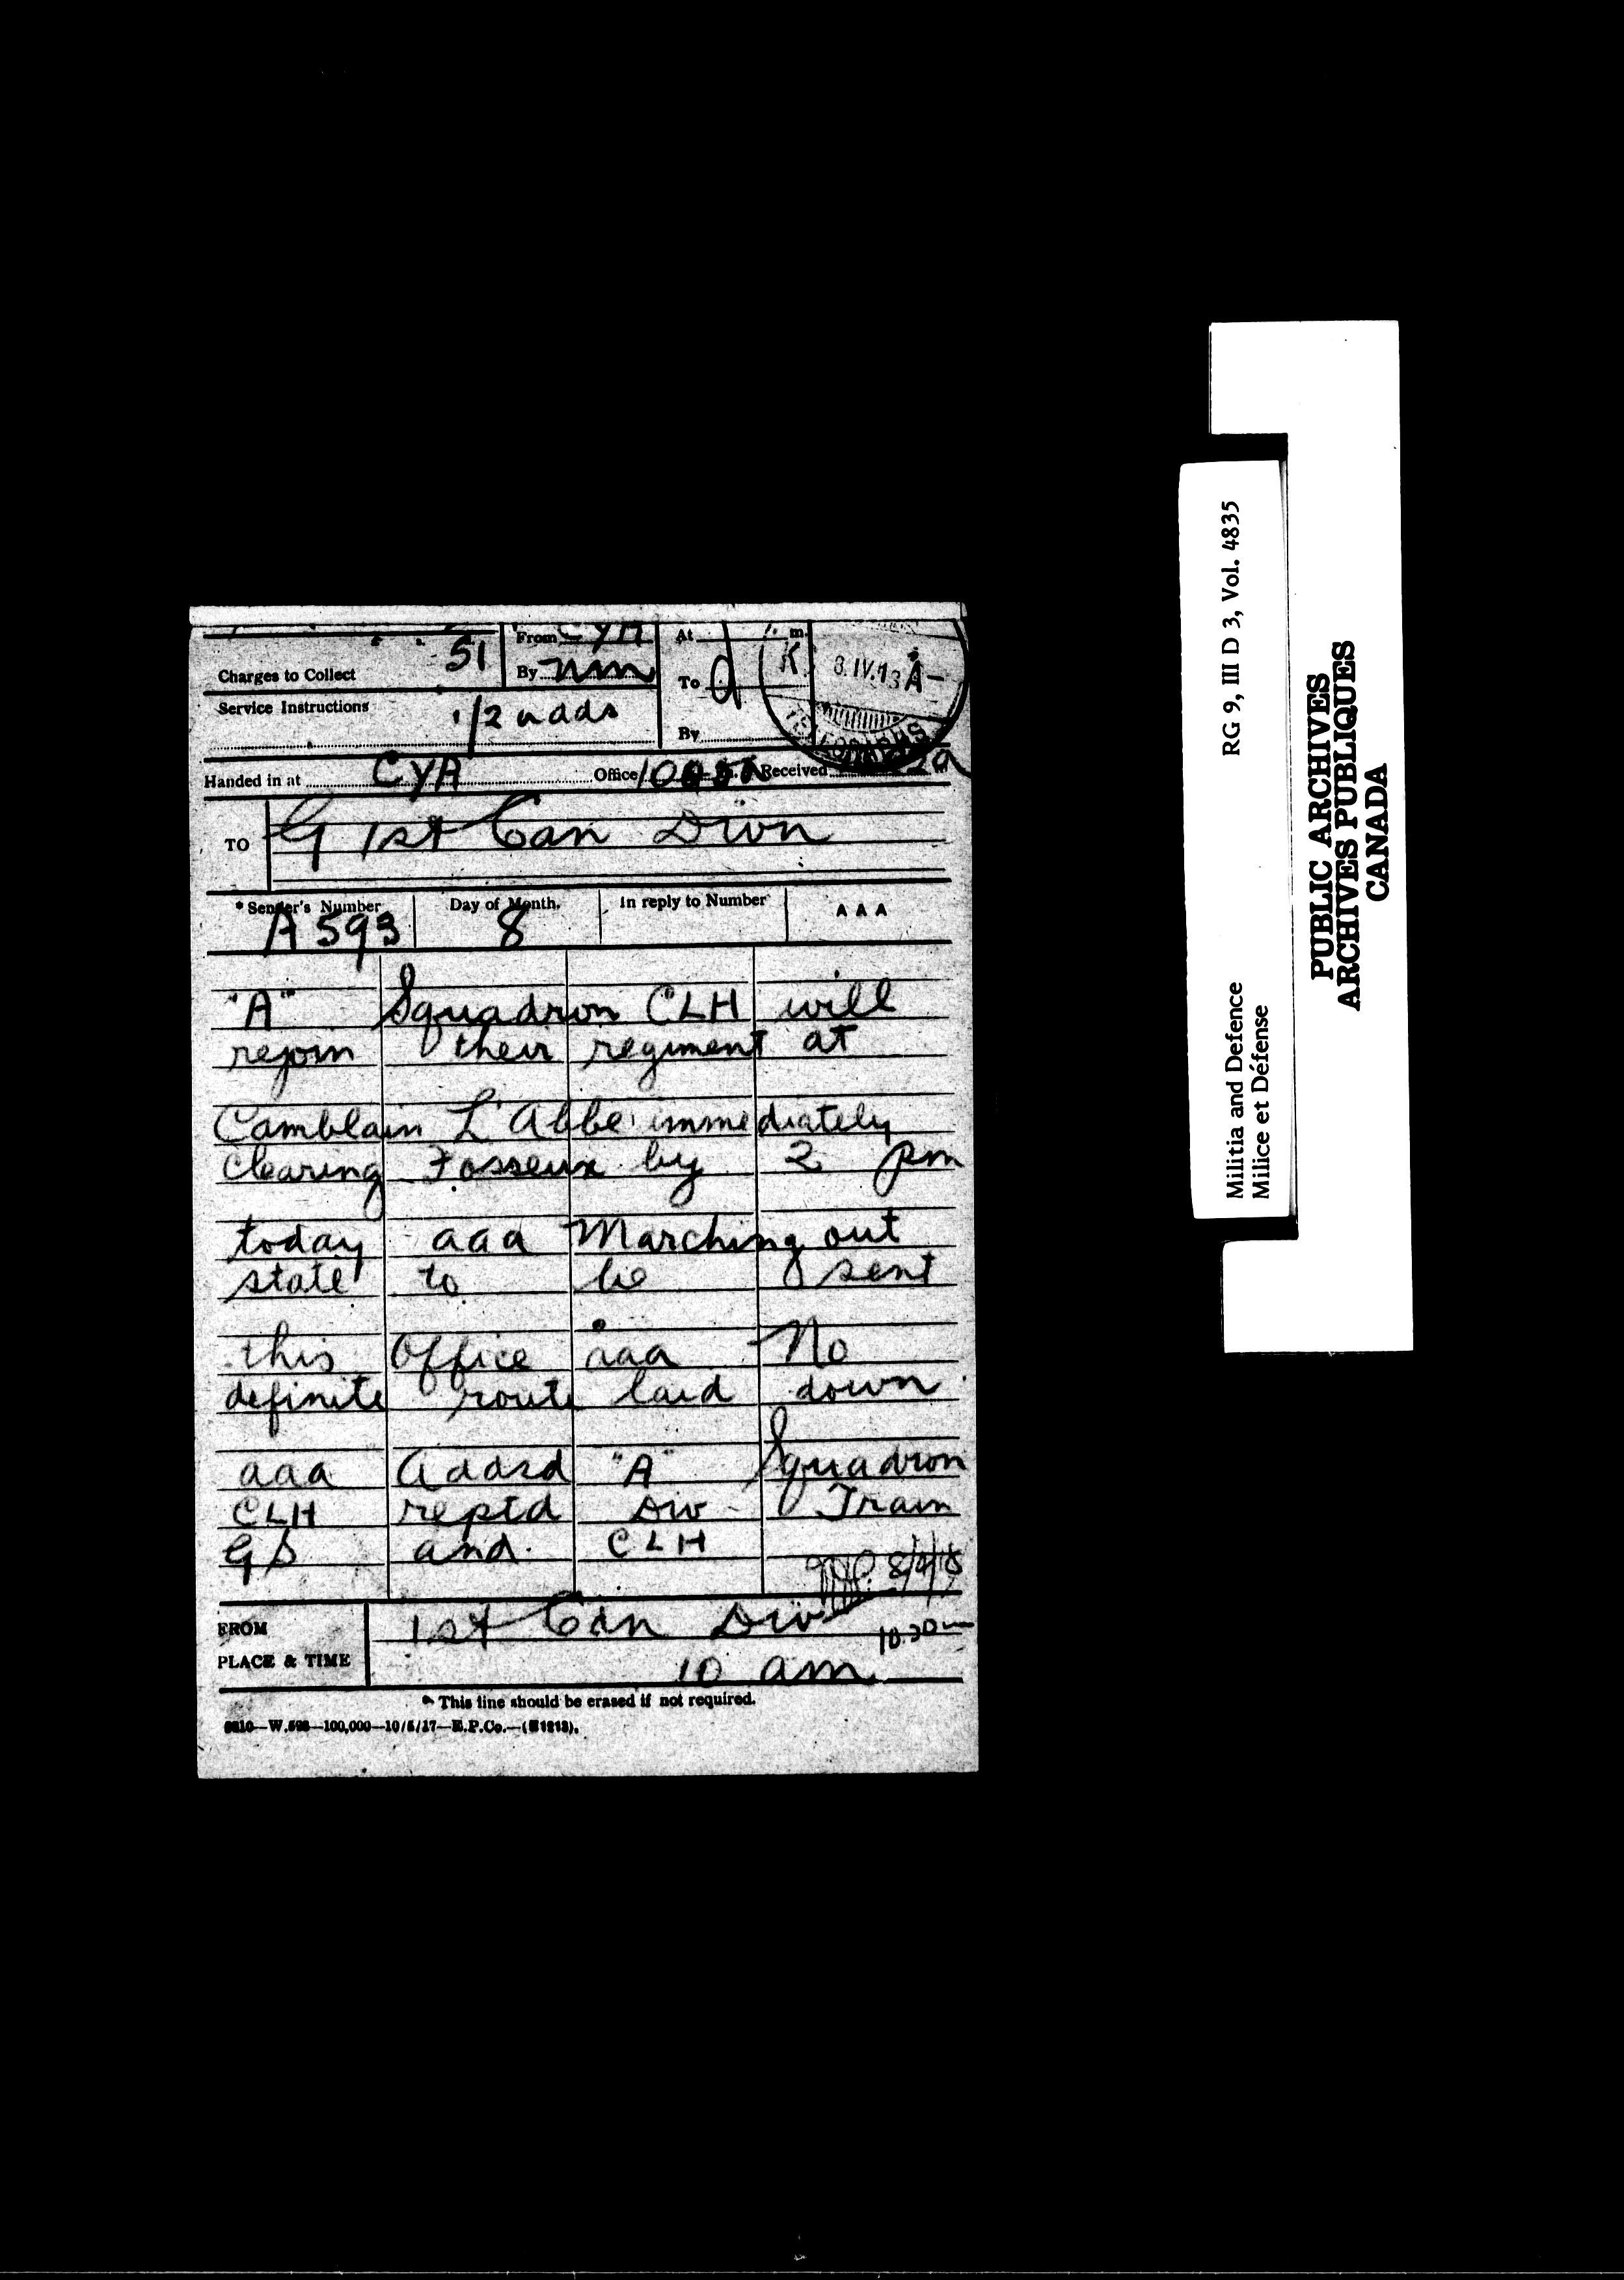 Charges to Collect 51
From CYA
By nm
At m.
To
By
K
8.IV.18 A-
TELEGRAPHS
Service Instructions 1/2 adds
Handed in at CYA Office Received
TO G 1st Can Divn
* Sender's Number Day of Month. In reply to Number AAA
A 593 8
"A" Squadron CLH will
rejoin their regiment at
Camblain L'Abbe immediately
clearing Fosseux by 2 pm
today aaa Marching out
state to be sent
this Office aaa No
definite route laid down
aaa Addsd "A" Squadron
CLH reptd Div Train
GS and CLH
8/4/18
FROM 1st Can Div
10.30
PLACE & TIME 10 am
* This line should be erased if not required.
100,000—10/5/17—E.P.Co.—(E1213).
RG 9, III D 3, Vol. 4835
Militia and Defence
Milice et Défense
PUBLIC ARCHIVES
ARCHIVES PUBLIQUES
CANADA